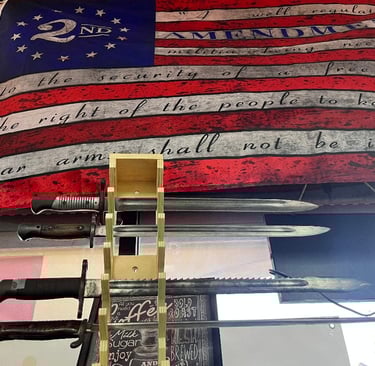 2ND
"A well regula
AMENDME
militia being nece
to the security of a free
he right of the people to ke
ear arms shall not be i
Coffee
Milk
Sugar
Enjoy
BREWED
AND